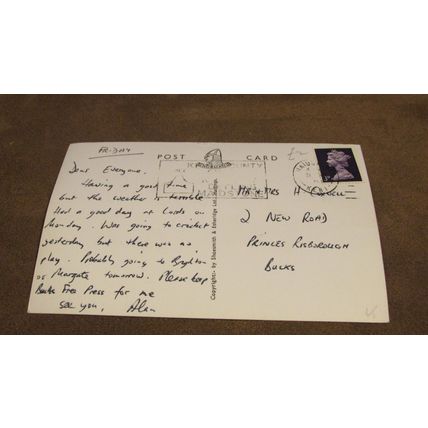 FRIDAY
POST CARD
Dear Everyone,
Having a good time
but the weather is terrible
Had a good day at Lords on
Monday. Was going to cricket
yesterday but there was no
play. Probably going to Brighton
or Margate tomorrow. Please keep
Bucks Free Press for me
see you,
Alan
Copyright:- by Shoesmith & Etheridge Ltd., Hastings.
MAIDSTONE
Mr & Mrs H
2 NEW ROAD
PRINCES RISBOROUGH
BUCKS